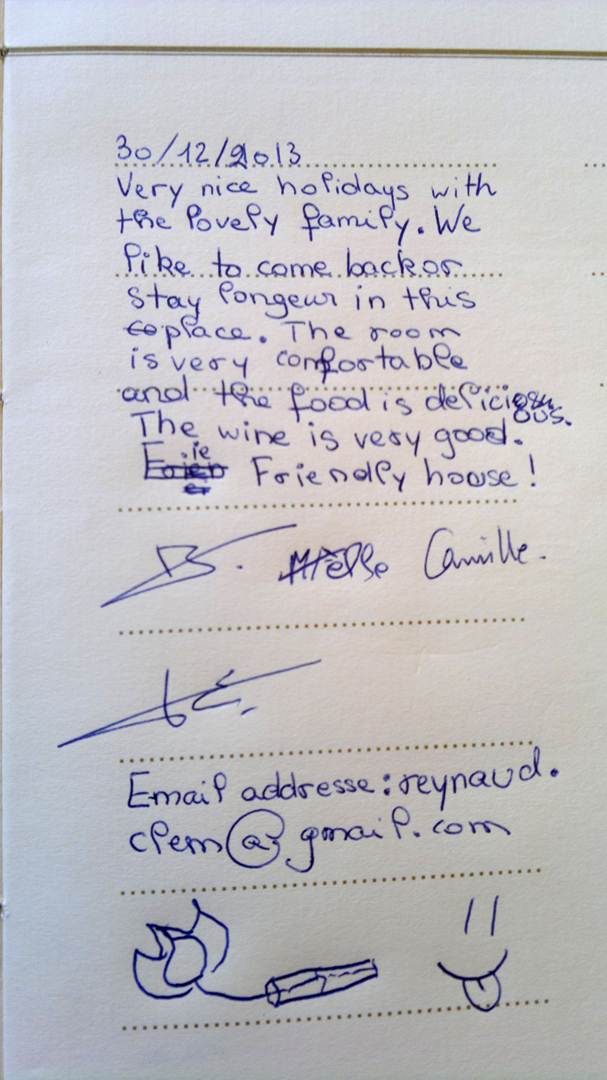 30/12/2013
Very nice holidays with
the lovely family. We
like to come back or
stay longeur in this
place. The room
is very confortable
and the food is delicious.
The wine is very good.
Friendly house !
Camille.
Email addresse : reynaud.
clem@gmail.com